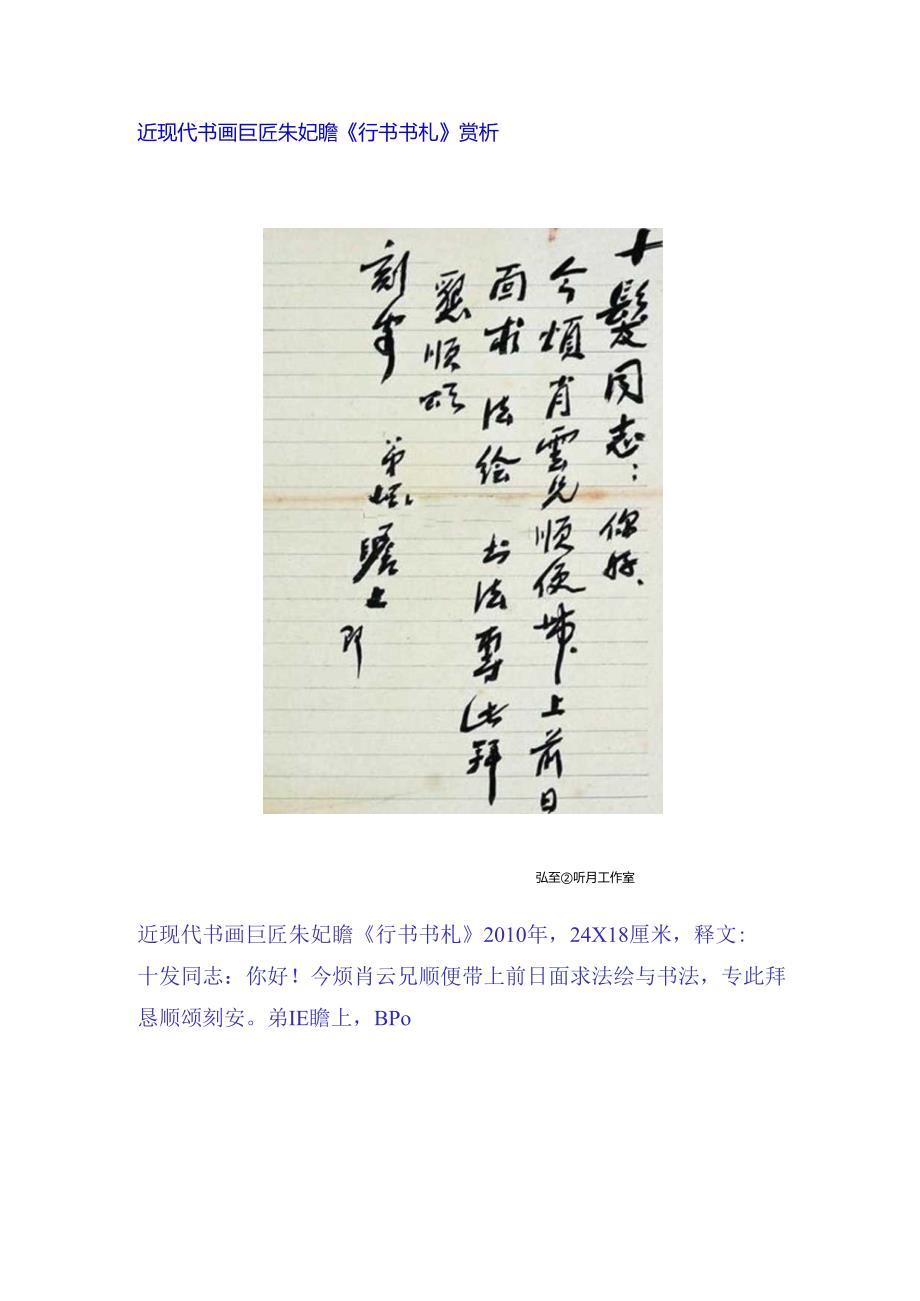 近现代书画巨匠朱妃瞻《行书书札》赏析
十髮同志：你好、
今煩肖雲兄順便带上前日
面求 法绘 书法專此拜
懇順颂
刻安
弟 瞻上
弘至②听月工作室
近现代书画巨匠朱妃瞻《行书书札》2010年，24X18厘米，释文:
十发同志：你好！今烦肖云兄顺便带上前日面求法绘与书法，专此拜
恳顺颂刻安。弟IE瞻上，BPo